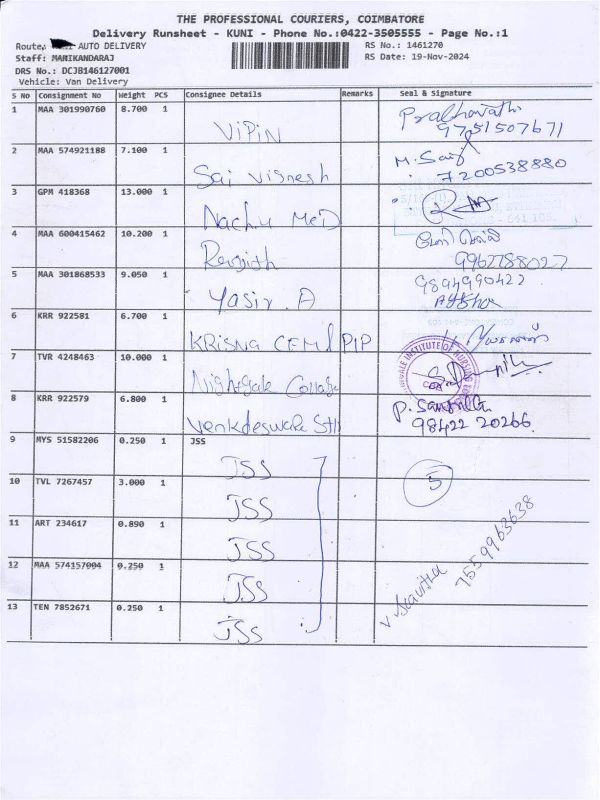 THE PROFESSIONAL COURIERS, COIMBATORE
Delivery Runsheet - KUNI - Phone No.:0422-3505555 - Page No.:1
Route: AUTO DELIVERY
RS No.: 1461270
Staff: MANIKANDARAJ
RS Date: 19-Nov-2024
DRS No.: DCJB146127001
Vehicle: Van Delivery
S No Consignment No Weight PCS Consignee Details Remarks Seal & Signature
1 MAA 301990760 8.700 1 VIPIN Prabhavathi
9751507671
2 MAA 574921188 7.100 1 Sai Vignesh M. Sai
7200538880
3 GPM 418368 13.000 1 Nachu MED
4 MAA 600415462 10.200 1 Renjith
9962788027
5 MAA 301868533 9.050 1 Yasir . A 9894990422
6 KRR 922581 6.700 1 KRISNA CEM PIP
7 TVR 4248463 10.000 1 Nightgale College
INSTITUTE OF NURSING
8 KRR 922579 6.800 1 Venkdeswara P. Santhila
98422 20266
9 MYS 51582206 0.250 1 JSS
JSS
10 TVL 7267457 3.000 1 JSS 5
11 ART 234617 0.890 1 JSS
12 MAA 574157004 0.250 1 JSS
13 TEN 7852671 0.250 1 JSS
V. Kavitha 7559963638